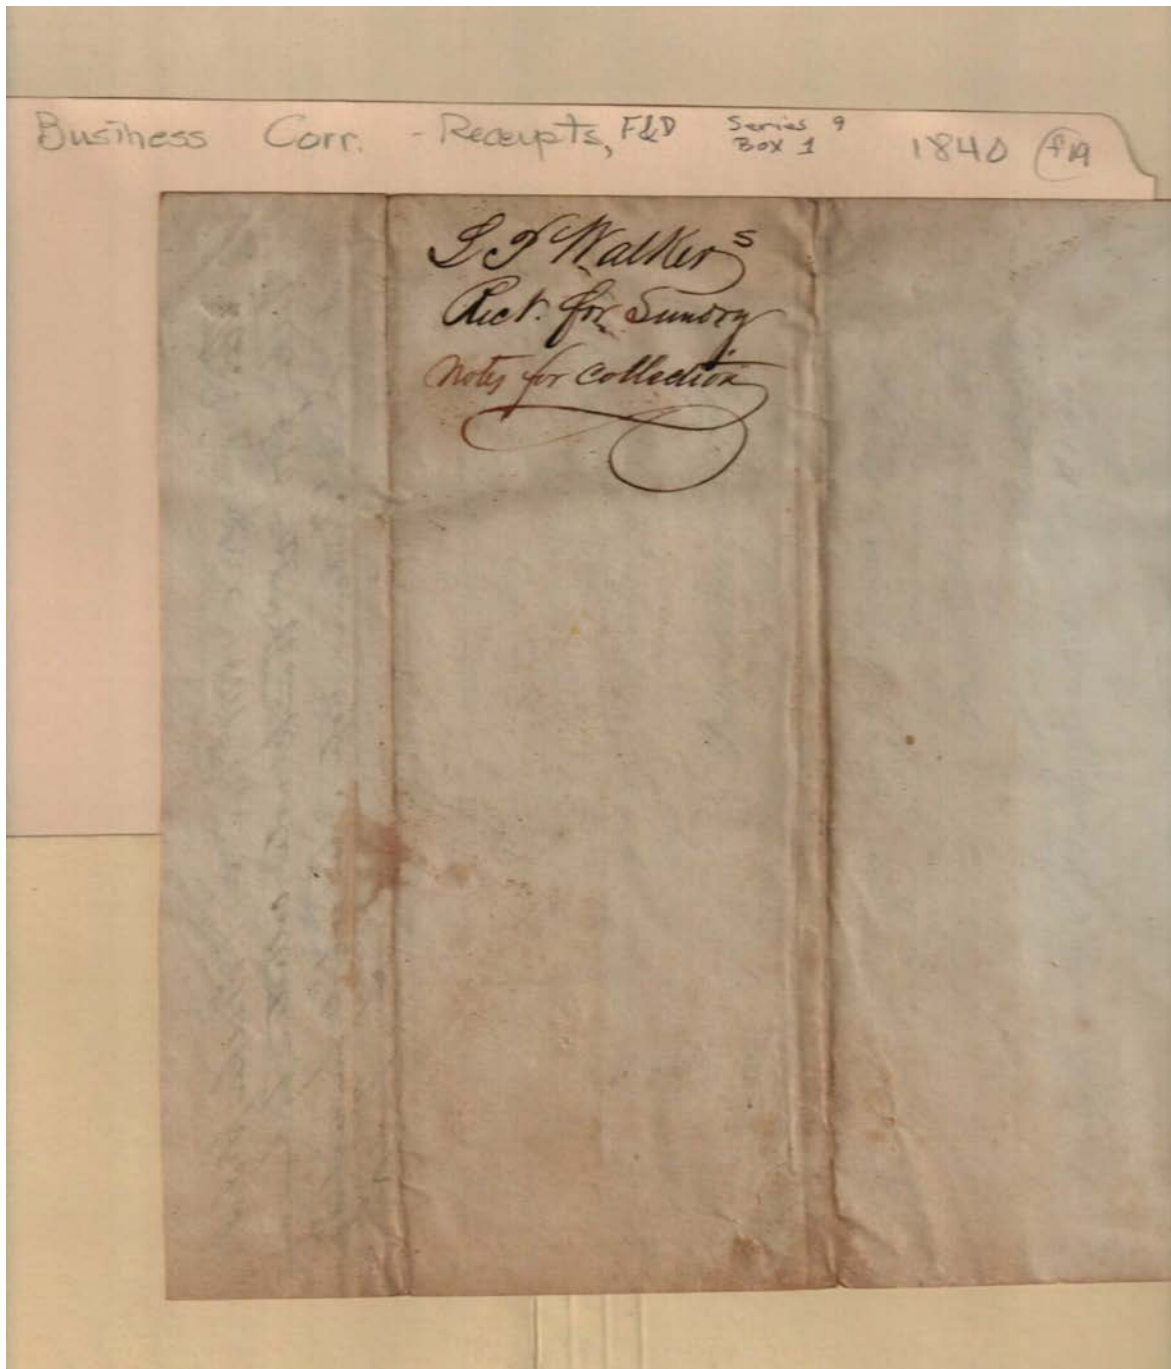 Business Corr. - Receipts, F&D Series 9 Box 1 1840 f19
L P Walkers
Rect. for Sundry
Notes for Collection